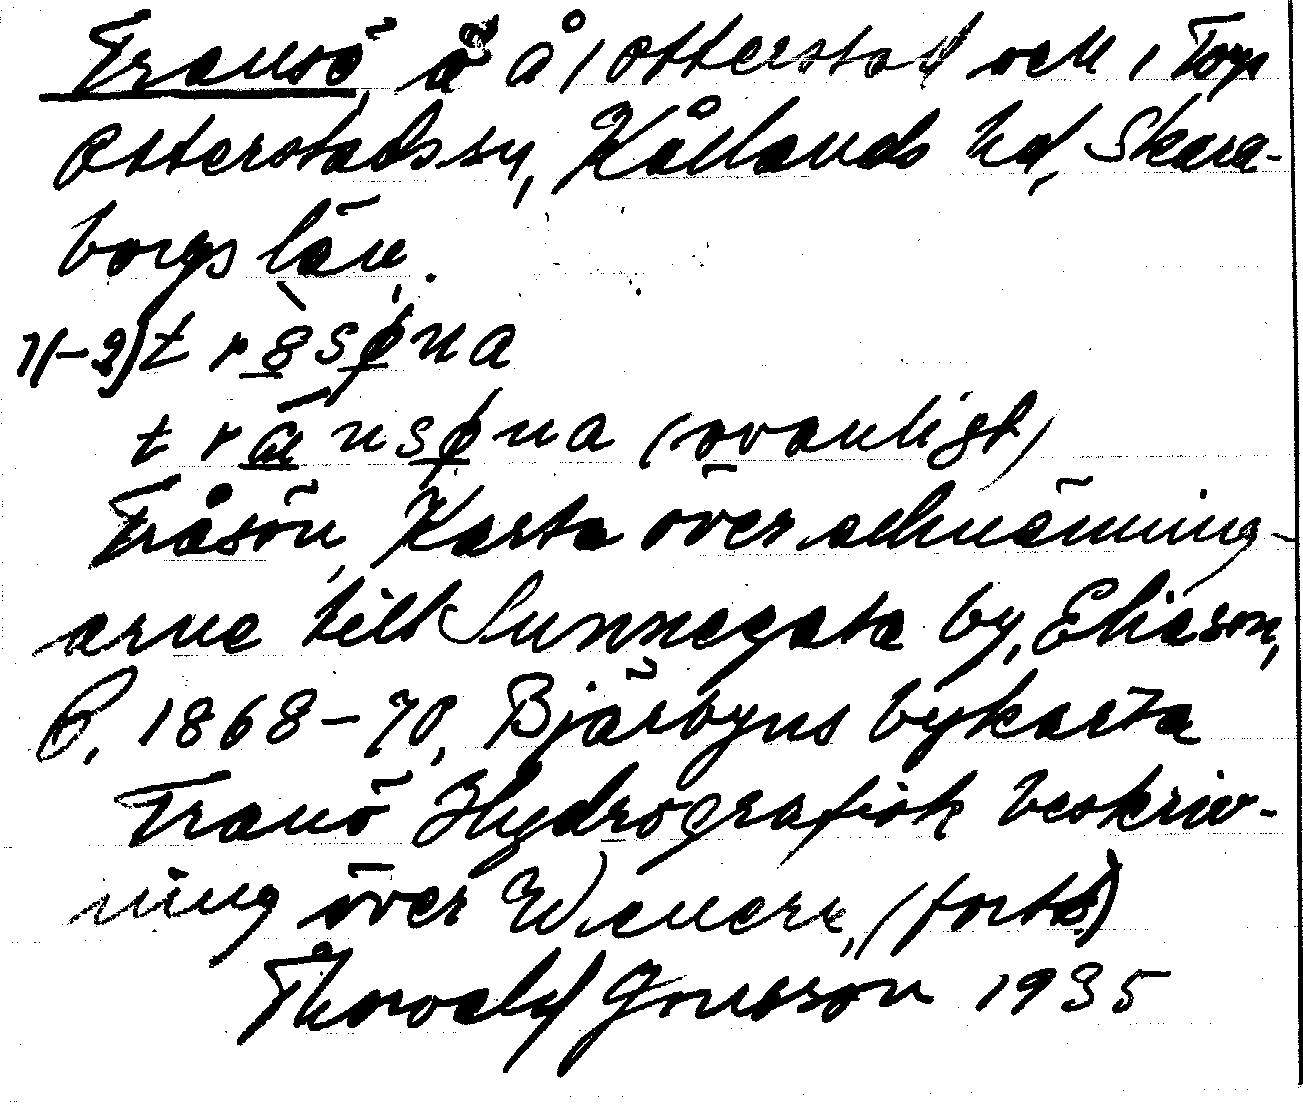 Fransö, ö å / Otterstad och i Torp
Otterstads sn, Kållands hd, Skara-
borgs län.
1(-2) t r ö̀ s ø n a
t r a n s ø n a (ovanligt)
Fråsön, Karta över allmänning-
arne till Sunnegata by, Eliason,
P, 1868-70, Bjärbyns bykarta
Franö Hydrografisk beskriv-
ning över Wenern, (forts)
Thorvald Jonsson 1935